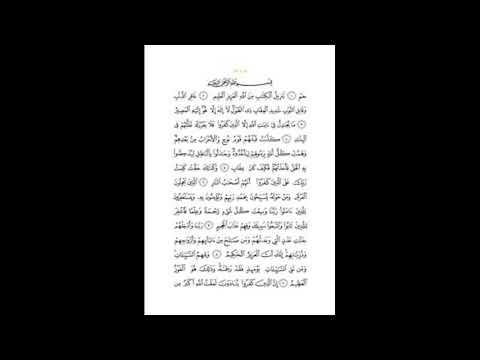 بسم الله الرحمن الرحيم
حم ۝ تنزيل الكتاب من الله العزيز العليم ۝ غافر الذنب
وقابل التوب شديد العقاب ذي الطول لا إله إلا هو إليه المصير
۝ ما يجادل في آيات الله إلا الذين كفروا فلا يغررك تقلبهم في
البلاد ۝ كذبت قبلهم قوم نوح والأحزاب من بعدهم
وهمت كل أمة برسولهم ليأخذوه وجادلوا بالباطل ليدحضوا
به الحق فأخذتهم فكيف كان عقاب ۝ وكذلك حقت كلمت
ربك على الذين كفروا أنهم أصحاب النار ۝ الذين يحملون
العرش ومن حوله يسبحون بحمد ربهم ويؤمنون به ويستغفرون
للذين آمنوا ربنا وسعت كل شيء رحمة وعلما فاغفر
للذين تابوا واتبعوا سبيلك وقهم عذاب الجحيم ۝ ربنا وأدخلهم
جنات عدن التي وعدتهم ومن صلح من آبائهم وأزواجهم
وذرياتهم إنك أنت العزيز الحكيم ۝ وقهم السيئات
ومن تق السيئات يومئذ فقد رحمته وذلك هو الفوز
العظيم ۝ إن الذين كفروا ينادون لمقت الله أكبر من